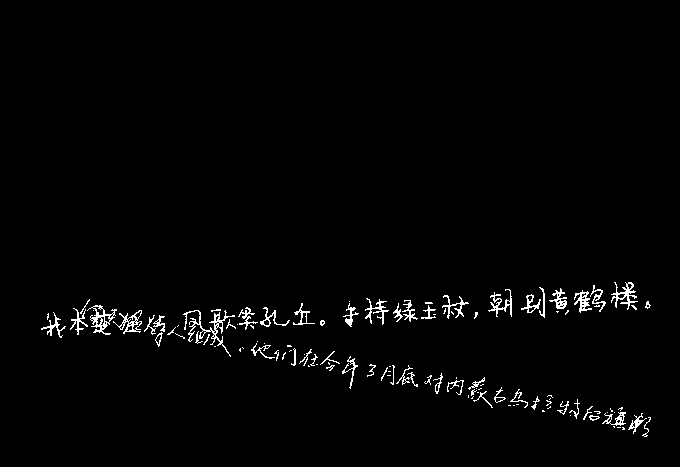 我本楚狂人,凤歌笑孔丘。手持绿玉杖,朝别黄鹤楼。
人组成,他们在今年3月底对内蒙古乌拉特后旗潮